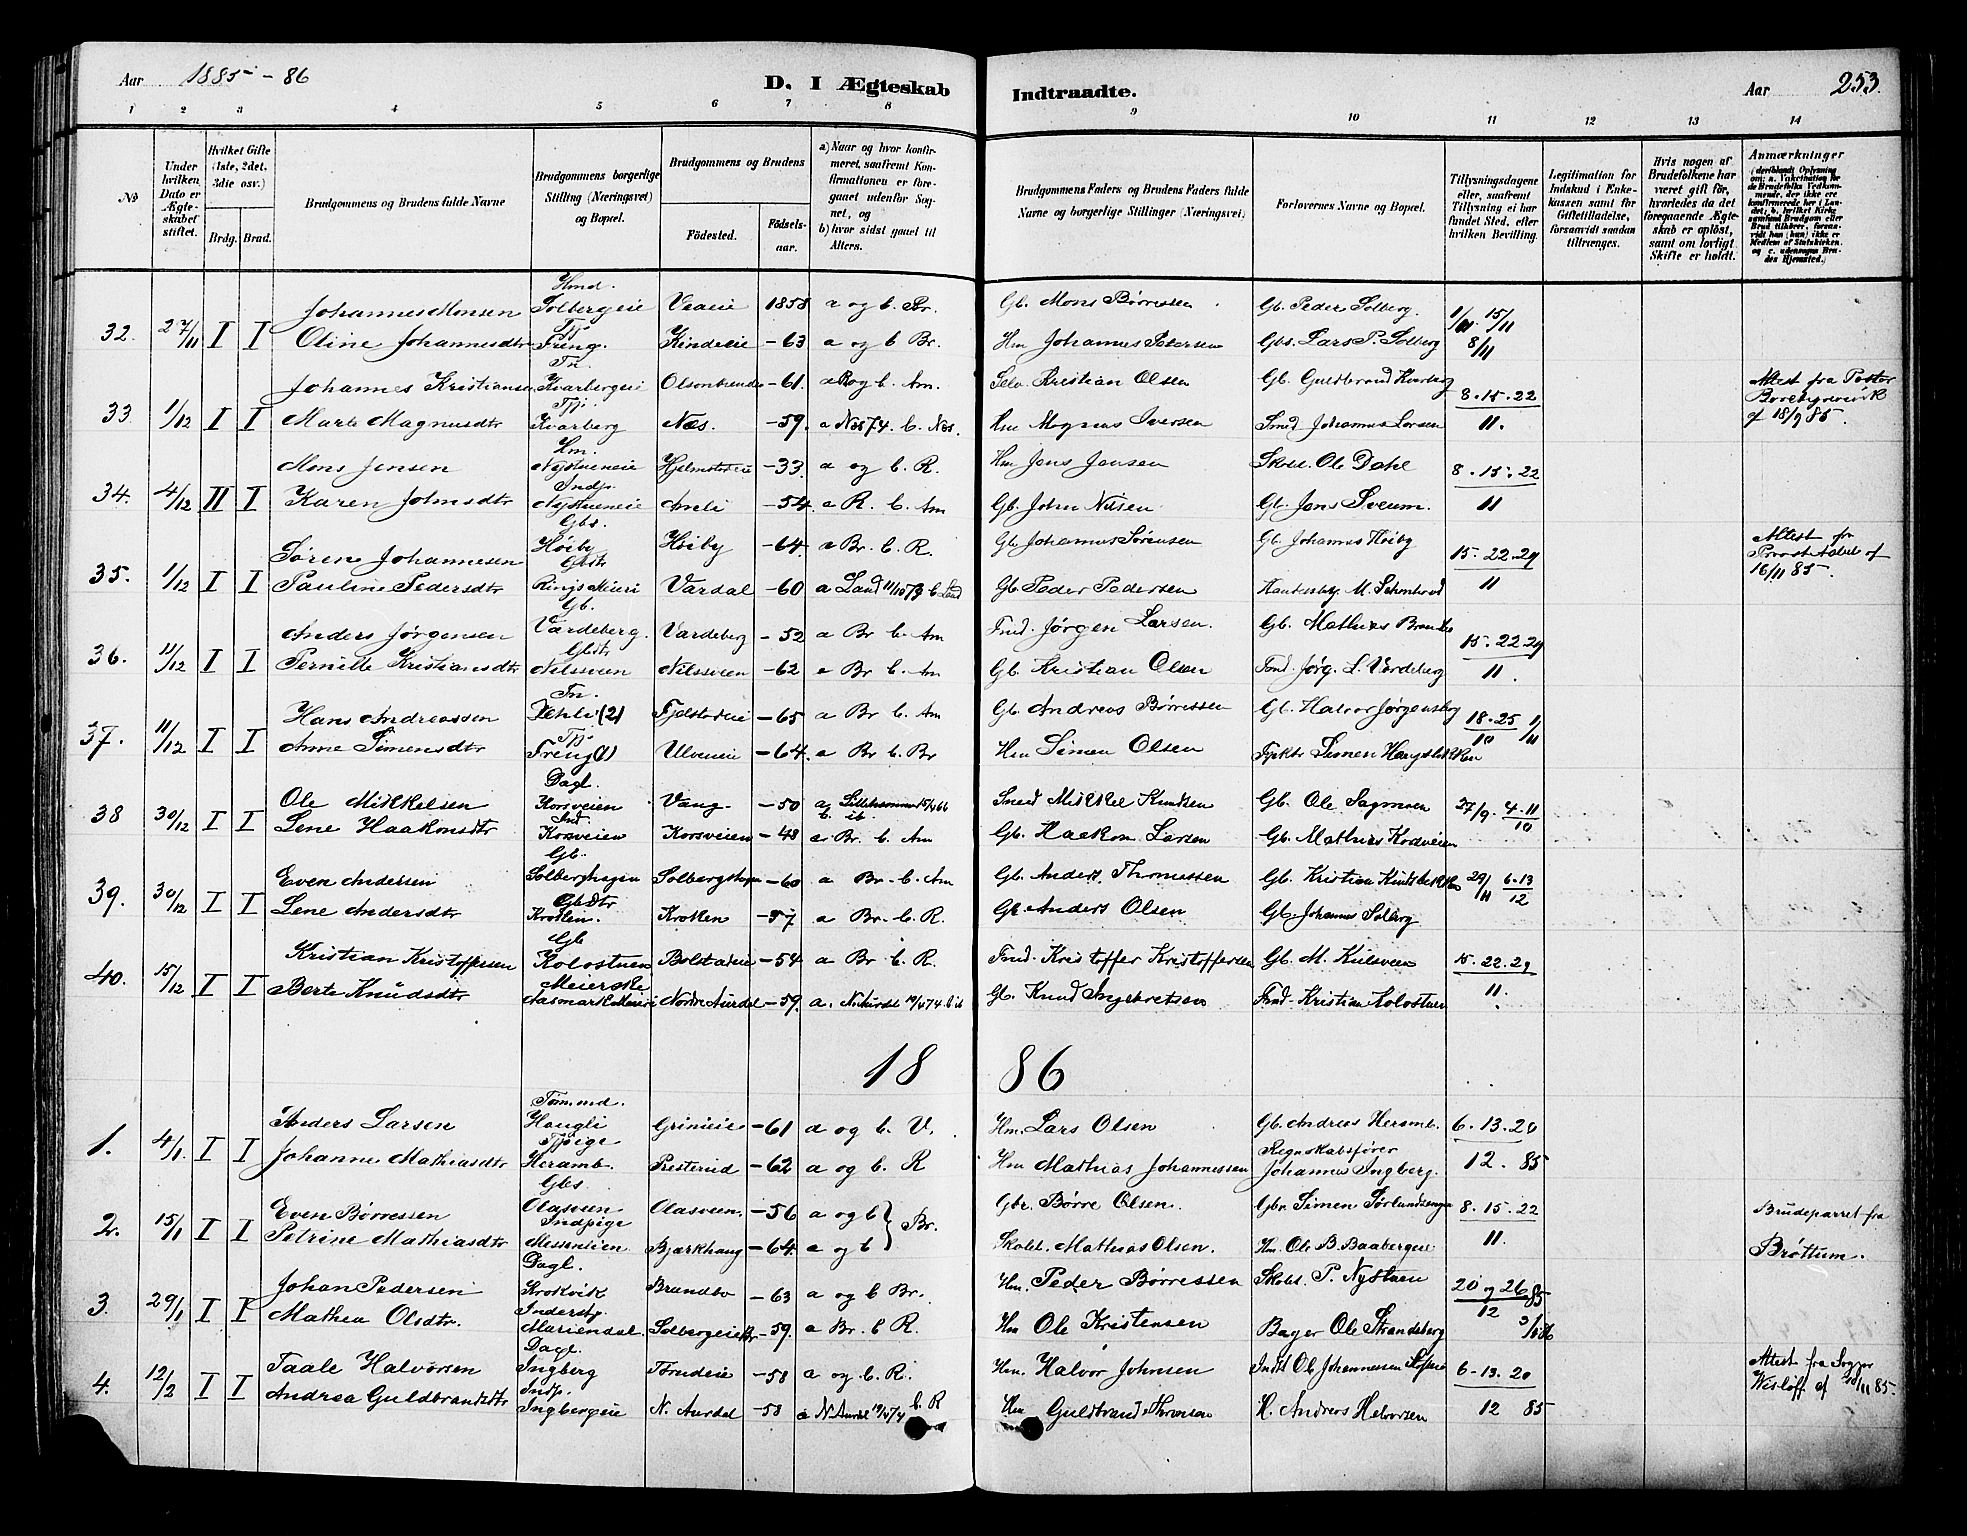 Aar 1885 - 86
D. I Ægteskab
Indtraadte.
Aar 253.
1 2 3 4 5 6 7 8 9 10 11 12 13 14
No
Under hvilken Dato er Ægteskabet stiftet.
Hvilket Gifte (1ste, 2det, 3die osv.)
Brdg. Brud.
Brudgommens og Brudens fulde Navne
Brudgommens borgerlige Stilling (Næringsvei) og Bopæl.
Brudgommens og Brudens
Fødested.
Fødselsaar.
a) Naar og hvor konfirmeret, saafremt Konfirmationen er foregaaet udenfor Sognet, og
b) hvor sidst gaaet til Alters.
Brudgommens Faders og Brudens Faders fulde Navne og borgerlige Stillinger (Næringsvei)
Forlovernes Navne og Bopæl.
Tillysningsdagene eller, saafremt Tillysning ei har fundet Sted, efter hvilken Bevilling.
Legitimation for Indskud i Enkekassen samt for Giftetilladelse, forsaavidt saadan tiltrænges.
Hvis nogen af Brudefolkene har været gift før, hvorledes da det foregaaende Ægteskab er opløst, samt om lovligt Skifte er holdt.
Anmærkninger
Hmd.
Johannes Monsen Solbergeie Vaaeie 1858 a og b. Br. Gb. Mons Børresen Gb. Peder Solberg. 1/11 15/11
32. 27/11 I I
Tpj.
Oline Johannesdtr Freng. Kindeeie -63 a og b Br. Hm Johannes Petersen Gbs. Lars P. Solberg 8/11
Tn.
Johannes Kristiansen Kvarbergeie -61. a R og b. Am. Selv. Kristian Olsen Gb. Guldbrand Kvarberg 8.15.22 Attest fra Pastor
33 1/12 I I
Tpj.
Marte Magnusdtr Kvarberg Næs. -59. a Næs 74. b. Næs. Hm Magnus Iversen Smed Johannes Larsen 11. af 18/9 85.
Hm.
Mons Jensen Nystueneie Hjelmstadeie -33 a og b. R. Hm Jens Jensen Skoll. Ole Dahl 8.15.22
34. 4/12 II I
Indp.
Karen Johnsdtr Nystueneie -54. a R. b. Am Gb. John Nilsen Gb. Jens Sveum. 11
Gbs.
Søren Johannesen Høiby Høiby -64. a Br. b. R. Gb. Johannes Sørensen Gb. Johannes Høiby 15.22.29 Attest fra
35. 1/12 I I
Gbdtr
Pauline Pedersdtr Rings Meieri Vardal -60 a Land 11/10 73 b Land Gb. Peder Pedersen 11 16/11 85.
Gb.
Anders Jørgensen Vardeberg. Vardeberg -52 a Br b. Am Fmd. Jørgen Larsen. Gb. Mathias 15.22.29
36. 11/12 I I
Gbdtr.
Pernille Kristiansdtr Nilssveen Nilssveen -62 a Br b. Am Gb. Kristian Olsen Fmd. Jørg. L. Vardeberg 11.
Tn.
Hans Andreassen (2) Fjelstadeie -65 a Br b. Am Gb. Andreas Børresen Gb. Halvor Jørgensby 18.25 1/11
37. 11/12 I I
Tpj.
Anne Simensdtr Freng (1) Ulveneie -64. a Br b. Br Hm Simen Olsen Simen 10
Dagl.
Ole Mikkelsen Korsveien Vang. -50 a Lillehammer 15/4 66 b. ib. Smed Mikkel Knudsen Gb. Ole Sagmoen 27/9. 4.11
38 30/12 I I
Ind.
Lene Haakonsdtr Korsveien Korsveien -48 a Br. b. Am Gb. Haakon Larsen Gb. Mathias Korsveien 10
Gb.
Even Andersen Solberghagen Solbergshagen -60 a Br. b. Am Gb. Anders Thomassen Gb. Kristian 29/11 6.13
39. 30/12 I I
Gbdtr
Lene Andersdtr Kroken. Kroken -57 a Br. b. R. Gb. Anders Olsen Gb. Johannes Solberg 12
Gb
Kristian Kristoffersen Kolostuen Bolstadeie -54 a Br. b. R. Fmd. Kristoffer Kristoffersen Gb. M. Kulsveen 15.22.29
40. 15/12 I I
Meierske
Berte Knudsdtr Aasmark Meieri Nordre Aurdal -59. a. N. Aurdal 19/4 74. b ib Gb. Knud Ingebretsen Fmd. Kristian Kolostuen 11.
18 86
Tømmd.
Anders Larsen Haugli Grimeie -61 a og b. V. Hm. Lars Olsen Gb. Andreas Heramb. 6.13.20
1. 4/1 I I
Tjpige Regnskabsfører
Johanne Mathiasdtr Heramb. Presterud -62 a og b. R Hm Mathias Johannessen Johannes Ingberg. 12. 85
Gbs.
Even Børressen Olasveen Olasveen. -56 a og b Gbr. Børre Olsen. Gbr. Simen Sørlundsengen 8.15.22 Brudeparret fra
2. 15/1 I I Br.
Indpige
Petrine Mathiasdtr Messenlien Bjærkhaug -64. a og b Skoll. Mathias Olsen. Hm. Ole B. Baabergeie 11. Brøttum.
Dagl.
Johan Pedersen Krokvik Brandbo -63 a og b Br. Hm. Peder Børressen Skoll. P. Nystuen 20 og 26 85
3. 29/1 I I 12
Inderstp.
Mathea Olsdtr. Mariendal. Solbergeie Br -59. a Br. b R. Hm Ole Kristensen Bager Ole Strandberg 3/1 86
Dagl.
Taale Halvorsen Ingberg -58 a og b. R. Hm. Halvor Johnsen Indst Ole Johannessen 6.13.20 Attest fra Sogpr
4. 12/2 I I
Indp.
Andrea Guldbrandsdtr Ingbergeie N. Aurdal -58 a N. Aurdal 19/4 74 b. R Hm Guldbrand Thronsen H. Anders Halvorsen 12 85 Wisløff af 30/11 85.